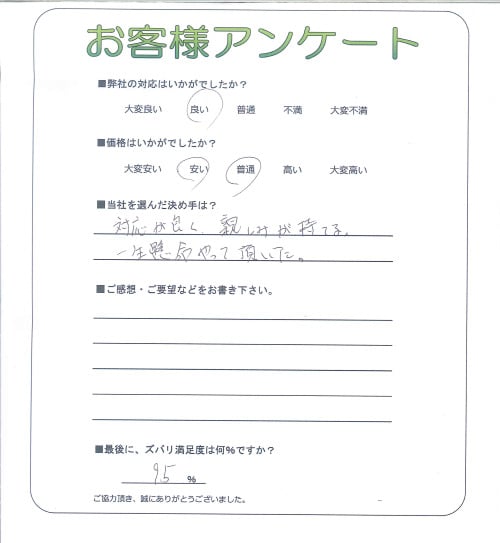 お客様アンケート
■弊社の対応はいかがでしたか？
大変良い 良い 普通 不満 大変不満
■価格はいかがでしたか？
大変安い 安い 普通 高い 大変高い
■当社を選んだ決め手は？
対応が良く、親しみが持てる。
一生懸命やって頂いた。
■ご感想・ご要望などをお書き下さい。
■最後に、ズバリ満足度は何％ですか？
95 %
ご協力頂き、誠にありがとうございました。